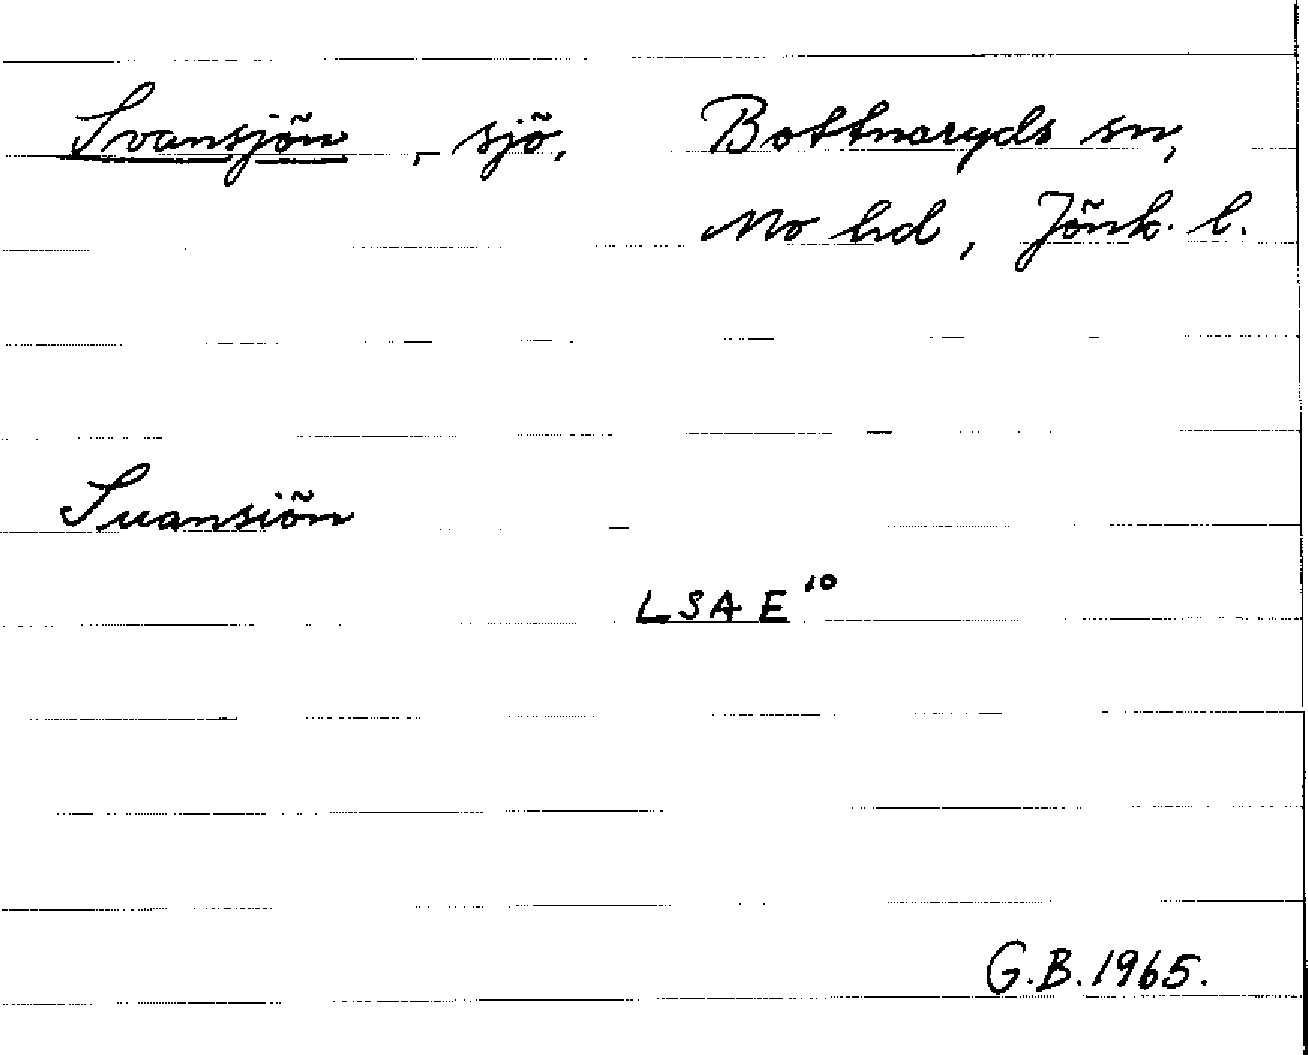 Svansjön, sjö, Bottnaryds sn,
Mo hd, Jönk. l.
Suansiön
LSA E¹⁰
G.B. 1965.